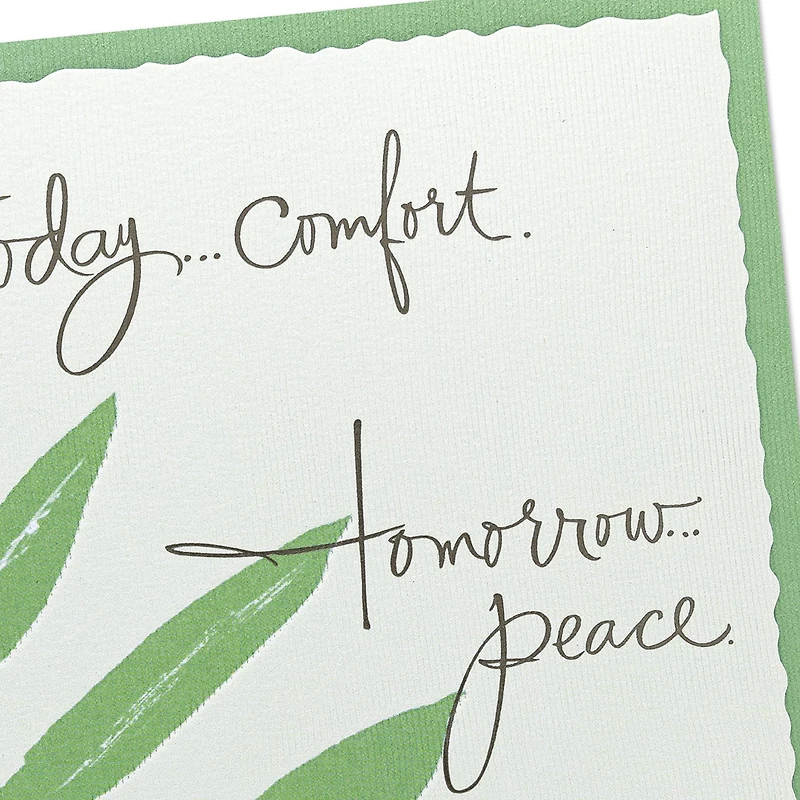 oday... Comfort.
tomorrow...
peace.